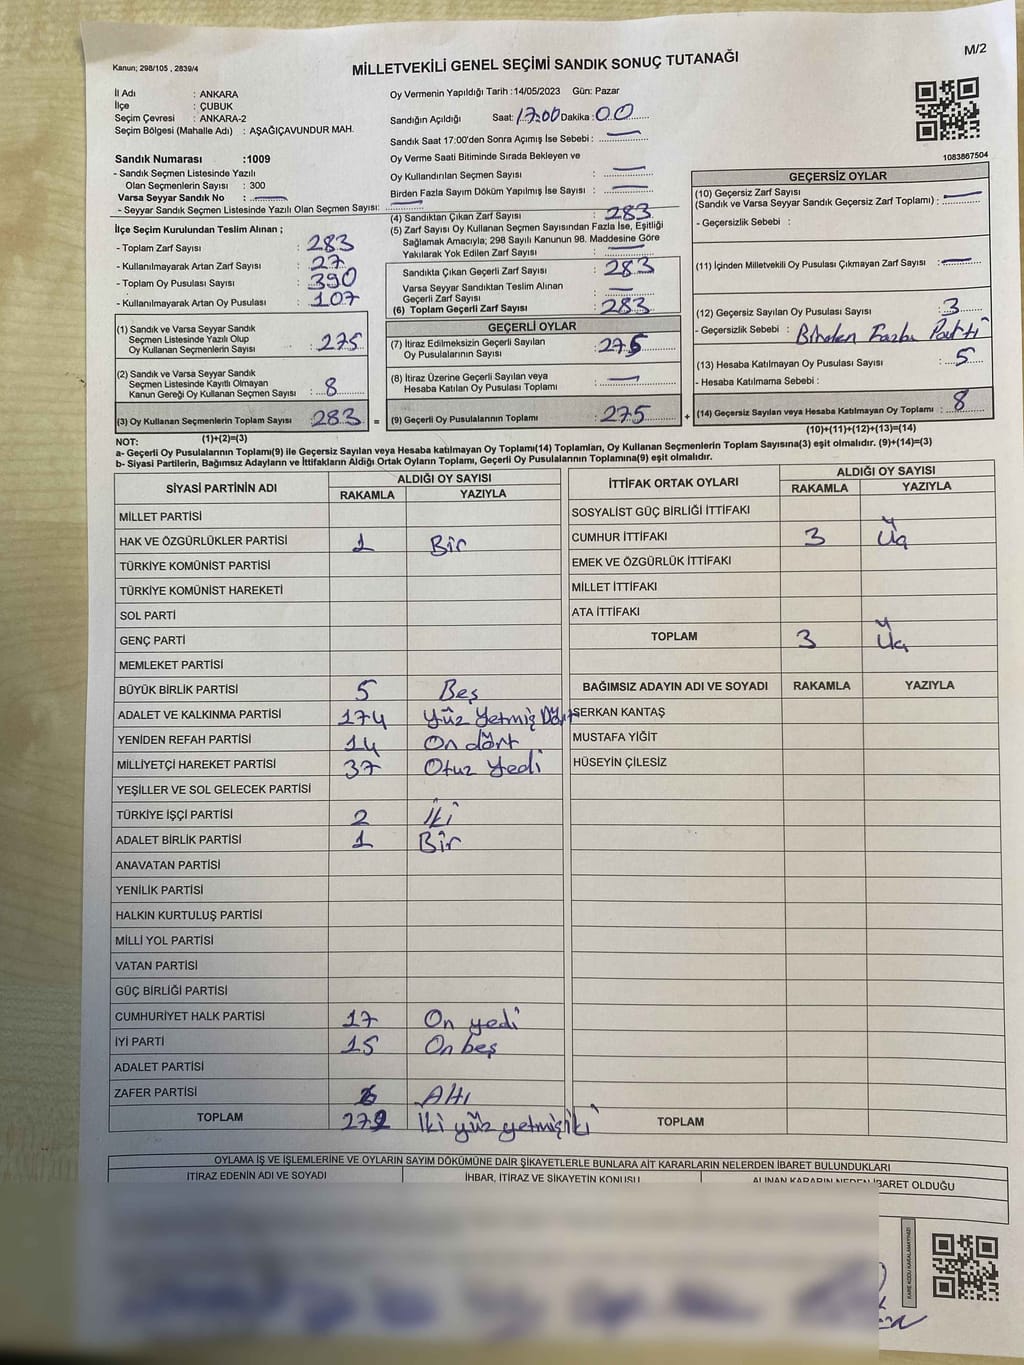 Kanun; 298/105 , 2839/4
MİLLETVEKİLİ GENEL SEÇİMİ SANDIK SONUÇ TUTANAĞI
M/2
İl Adı : ANKARA
İlçe : ÇUBUK
Seçim Çevresi : ANKARA-2
Seçim Bölgesi (Mahalle Adı) : AŞAĞIÇAVUNDUR MAH.
Sandık Numarası :1009
- Sandık Seçmen Listesinde Yazılı
Olan Seçmenlerin Sayısı : 300
Varsa Seyyar Sandık No : —
- Seyyar Sandık Seçmen Listesinde Yazılı Olan Seçmen Sayısı: —
İlçe Seçim Kurulundan Teslim Alınan ;
- Toplam Zarf Sayısı : 283
- Kullanılmayarak Artan Zarf Sayısı : 27
- Toplam Oy Pusulası Sayısı : 390
- Kullanılmayarak Artan Oy Pusulası : 107
(1) Sandık ve Varsa Seyyar Sandık
Seçmen Listesinde Yazılı Olup
Oy Kullanan Seçmenlerin Sayısı : 275
(2) Sandık ve Varsa Seyyar Sandık
Seçmen Listesinde Kayıtlı Olmayan
Kanun Gereği Oy Kullanan Seçmen Sayısı : 8
(3) Oy Kullanan Seçmenlerin Toplam Sayısı : 283 =
(1)+(2)=(3)
Oy Vermenin Yapıldığı Tarih :14/05/2023 Gün: Pazar
Sandığın Açıldığı Saat: 17:00 Dakika : 00
Sandık Saat 17:00'den Sonra Açımış İse Sebebi : —
Oy Verme Saati Bitiminde Sırada Bekleyen ve
Oy Kullandırılan Seçmen Sayısı : —
Birden Fazla Sayım Döküm Yapılmış İse Sayısı : —
(4) Sandıktan Çıkan Zarf Sayısı : 283
(5) Zarf Sayısı Oy Kullanan Seçmen Sayısından Fazla İse, Eşitliği
Sağlamak Amacıyla; 298 Sayılı Kanunun 98. Maddesine Göre
Yakılarak Yok Edilen Zarf Sayısı : —
Sandıkta Çıkan Geçerli Zarf Sayısı : 283
Varsa Seyyar Sandıktan Teslim Alınan
Geçerli Zarf Sayısı : —
(6) Toplam Geçerli Zarf Sayısı : 283
GEÇERLİ OYLAR
(7) İtiraz Edilmeksizin Geçerli Sayılan
Oy Pusulalarının Sayısı : 275
(8) İtiraz Üzerine Geçerli Sayılan veya
Hesaba Katılan Oy Pusulası Toplamı : —
(9) Geçerli Oy Pusulalarının Toplamı : 275 +
1083867504
GEÇERSİZ OYLAR
(10) Geçersiz Zarf Sayısı
(Sandık ve Varsa Seyyar Sandık Geçersiz Zarf Toplamı) : —
- Geçersizlik Sebebi :
(11) İçinden Milletvekili Oy Pusulası Çıkmayan Zarf Sayısı : —
(12) Geçersiz Sayılan Oy Pusulası Sayısı : 3
- Geçersizlik Sebebi : Birden Fazla Parti
(13) Hesaba Katılmayan Oy Pusulası Sayısı : 5
- Hesaba Katılmama Sebebi :
(14) Geçersiz Sayılan veya Hesaba Katılmayan Oy Toplamı : 8
(10)+(11)+(12)+(13)=(14)
NOT:
a- Geçerli Oy Pusulalarının Toplamı(9) ile Geçersiz Sayılan veya Hesaba katılmayan Oy Toplamı(14) Toplamları, Oy Kullanan Seçmenlerin Toplam Sayısına(3) eşit olmalıdır. (9)+(14)=(3)
b- Siyasi Partilerin, Bağımsız Adayların ve İttifakların Aldığı Ortak Oyların Toplamı, Geçerli Oy Pusulalarının Toplamına(9) eşit olmalıdır.
SİYASİ PARTİNİN ADI ALDIĞI OY SAYISI
RAKAMLA YAZIYLA
MİLLET PARTİSİ
HAK VE ÖZGÜRLÜKLER PARTİSİ 1 Bir
TÜRKİYE KOMÜNİST PARTİSİ
TÜRKİYE KOMÜNİST HAREKETİ
SOL PARTİ
GENÇ PARTİ
MEMLEKET PARTİSİ
BÜYÜK BİRLİK PARTİSİ 5 Beş
ADALET VE KALKINMA PARTİSİ 174 Yüz Yetmiş Dört
YENİDEN REFAH PARTİSİ 14 On dört
MİLLİYETÇİ HAREKET PARTİSİ 37 Otuz Yedi
YEŞİLLER VE SOL GELECEK PARTİSİ
TÜRKİYE İŞÇİ PARTİSİ 2 İki
ADALET BİRLİK PARTİSİ 1 Bir
ANAVATAN PARTİSİ
YENİLİK PARTİSİ
HALKIN KURTULUŞ PARTİSİ
MİLLİ YOL PARTİSİ
VATAN PARTİSİ
GÜÇ BİRLİĞİ PARTİSİ
CUMHURİYET HALK PARTİSİ 17 On yedi
İYİ PARTİ 15 On beş
ADALET PARTİSİ
ZAFER PARTİSİ 6 Altı
TOPLAM 272 İki yüz yetmiş iki
İTTİFAK ORTAK OYLARI ALDIĞI OY SAYISI
RAKAMLA YAZIYLA
SOSYALİST GÜÇ BİRLİĞİ İTTİFAKI
CUMHUR İTTİFAKI 3 Üç
EMEK VE ÖZGÜRLÜK İTTİFAKI
MİLLET İTTİFAKI
ATA İTTİFAKI
TOPLAM 3 Üç
BAĞIMSIZ ADAYIN ADI VE SOYADI RAKAMLA YAZIYLA
SERKAN KANTAŞ
MUSTAFA YİĞİT
HÜSEYİN ÇİLESİZ
TOPLAM
OYLAMA İŞ VE İŞLEMLERİNE VE OYLARIN SAYIM DÖKÜMÜNE DAİR ŞİKAYETLERLE BUNLARA AİT KARARLARIN NELERDEN İBARET BULUNDUKLARI
İTİRAZ EDENİN ADI VE SOYADI İHBAR, İTİRAZ VE ŞİKAYETİN KONUSU ALINAN KARARIN NEDEN İBARET OLDUĞU